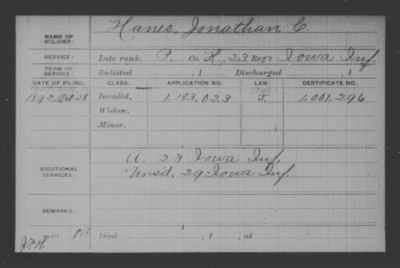 NAME OF SOLDIER: Hanes, Jonathan C.
SERVICE: Late rank, P. Co. K, 23 Reg't Iowa Inf.
TERM OF SERVICE: Enlisted , 1 Discharged , 1
DATE OF FILING. CLASS. APPLICATION NO. LAW. CERTIFICATE NO.
1892 Oct 28 Invalid, 1.183.023 J 1.001.296
Widow,
Minor,
ADDITIONAL SERVICES: A. 23 Iowa Inf.
Unas'd. 29 Iowa Inf.
REMARKS:
Died , 1 , at